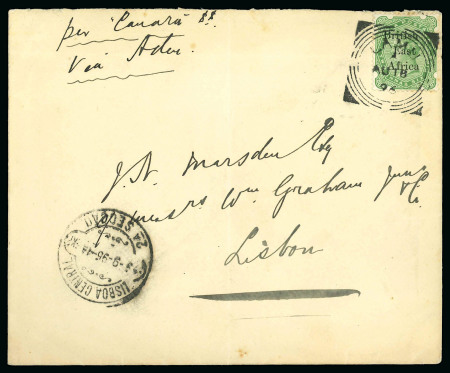 per "Canara" S.S.
Via Aden
British
East
Africa
LAMU
AU 18
J. N. Marsden Esq
Messrs Wm Graham Junr
& Co.
Lisbon
LISBOA CENTRAL
2A SECÇÃO